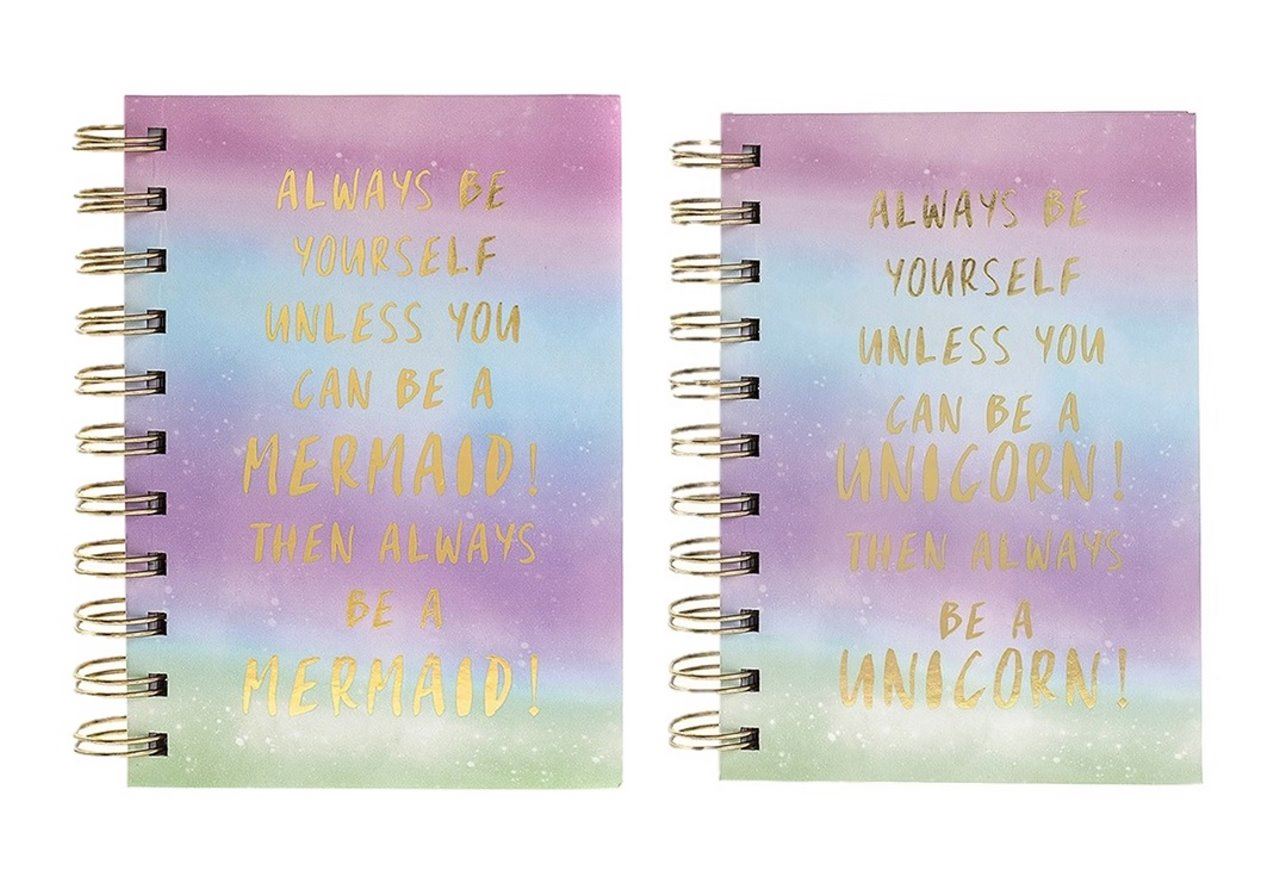 ALWAYS BE
YOURSELF
UNLESS YOU
CAN BE A
MERMAID!
THEN ALWAYS
BE A
MERMAID!
ALWAYS BE
YOURSELF
UNLESS YOU
CAN BE A
UNICORN!
THEN ALWAYS
BE A
UNICORN!